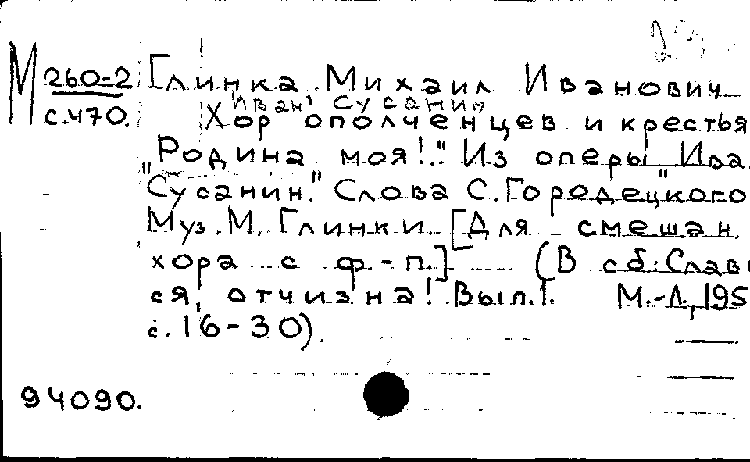 М 260-2 Глинка Михаил Иванович
Иван Сусанин
с.470. Хор ополченцев и крестья
"Родина моя!.." Из оперы "Ива
Сусанин." Слова С. Городецкого
Муз. М. Глинки. [Для смешан.
хора с ф.-п.] (В сб: Слав
ся, отчизна! Вып.1. М.-Л., 195
с. 16-30).
94090.